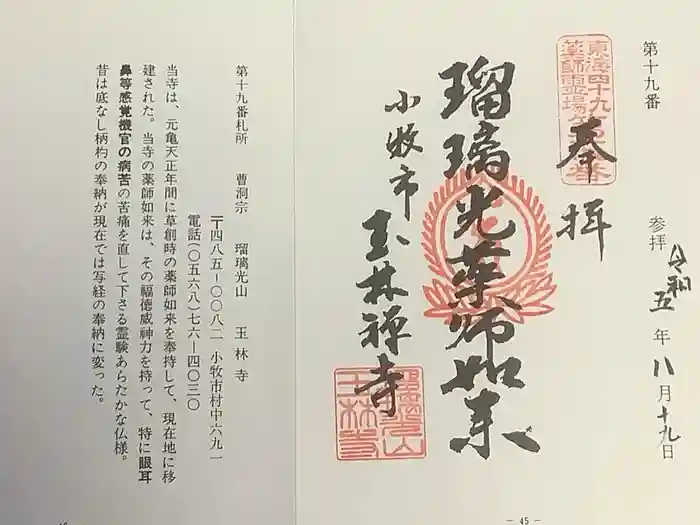 第十九番
参拝 令和五年八月十九日
東海四十九
薬師霊場
奉拝
瑠璃光薬師如来
小牧市
玉林禅寺
玉林寺
— 45 —
第十九番札所 曹洞宗 瑠璃光山 玉林寺
〒四八五-〇〇八二 小牧市村中六九一
電話(〇五六八)七六-四〇三〇
当寺は、元亀天正年間に草創時の薬師如来を奉持して、現在地に移
建された。当寺の薬師如来は、その福徳威神力を持って、特に眼耳
鼻等感覚機官の病苦の苦痛を直して下さる霊験あらたかな仏様。
昔は底なし柄杓の奉納が現在では写経の奉納に変った。